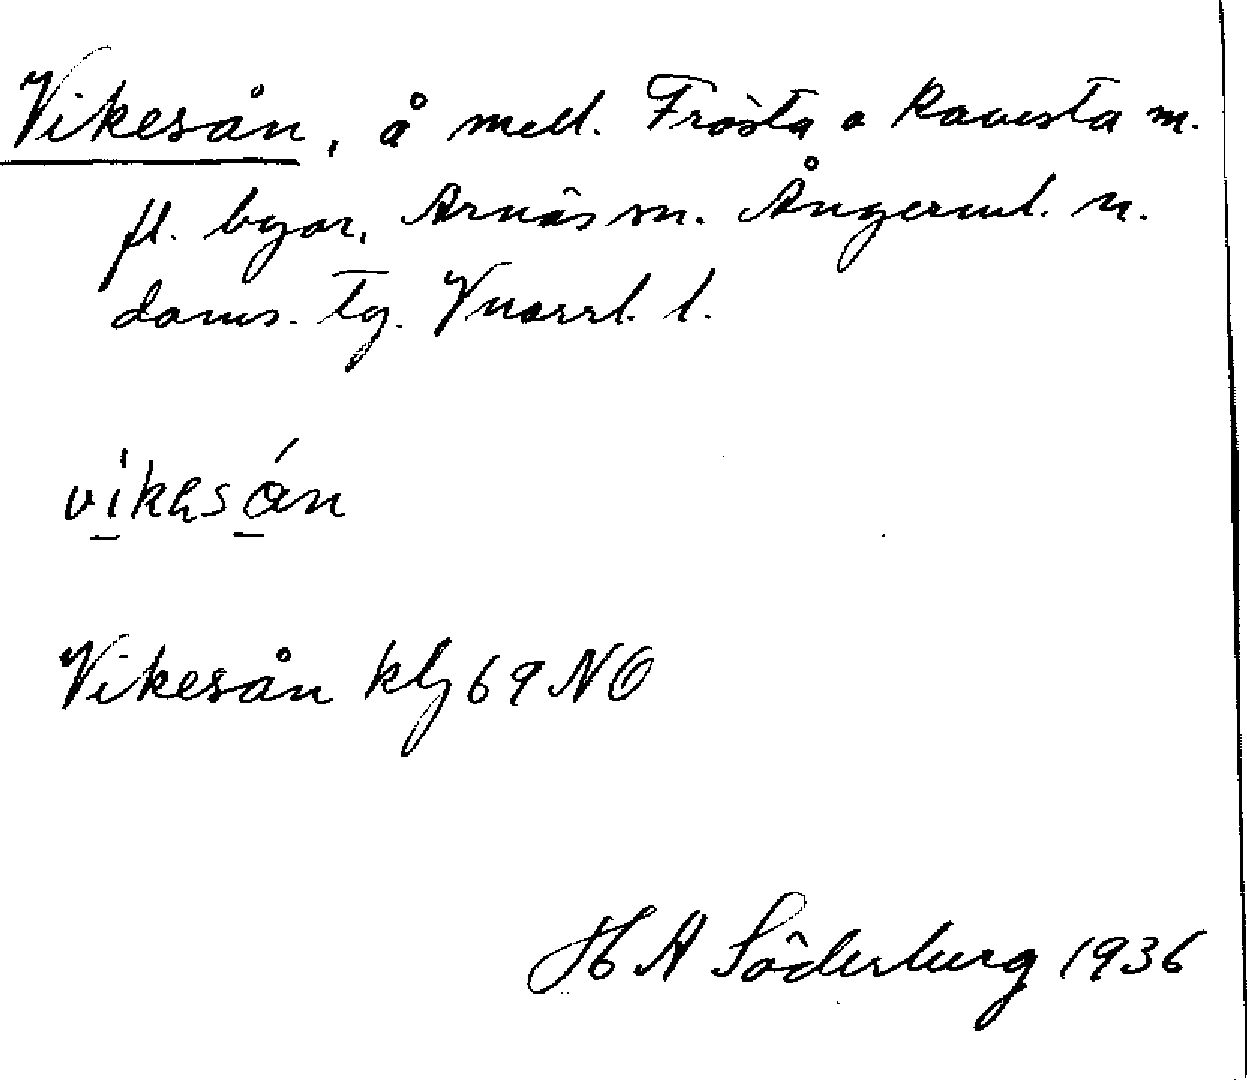 Vikesån, å mell. Frösta o Ravesta m.
fl. byar, Arnäs sn. Ångerml. n.
doms. tg. Vnorrl. l.
vikəsån
Vikesån kbl 69 NO
H A Söderberg 1936